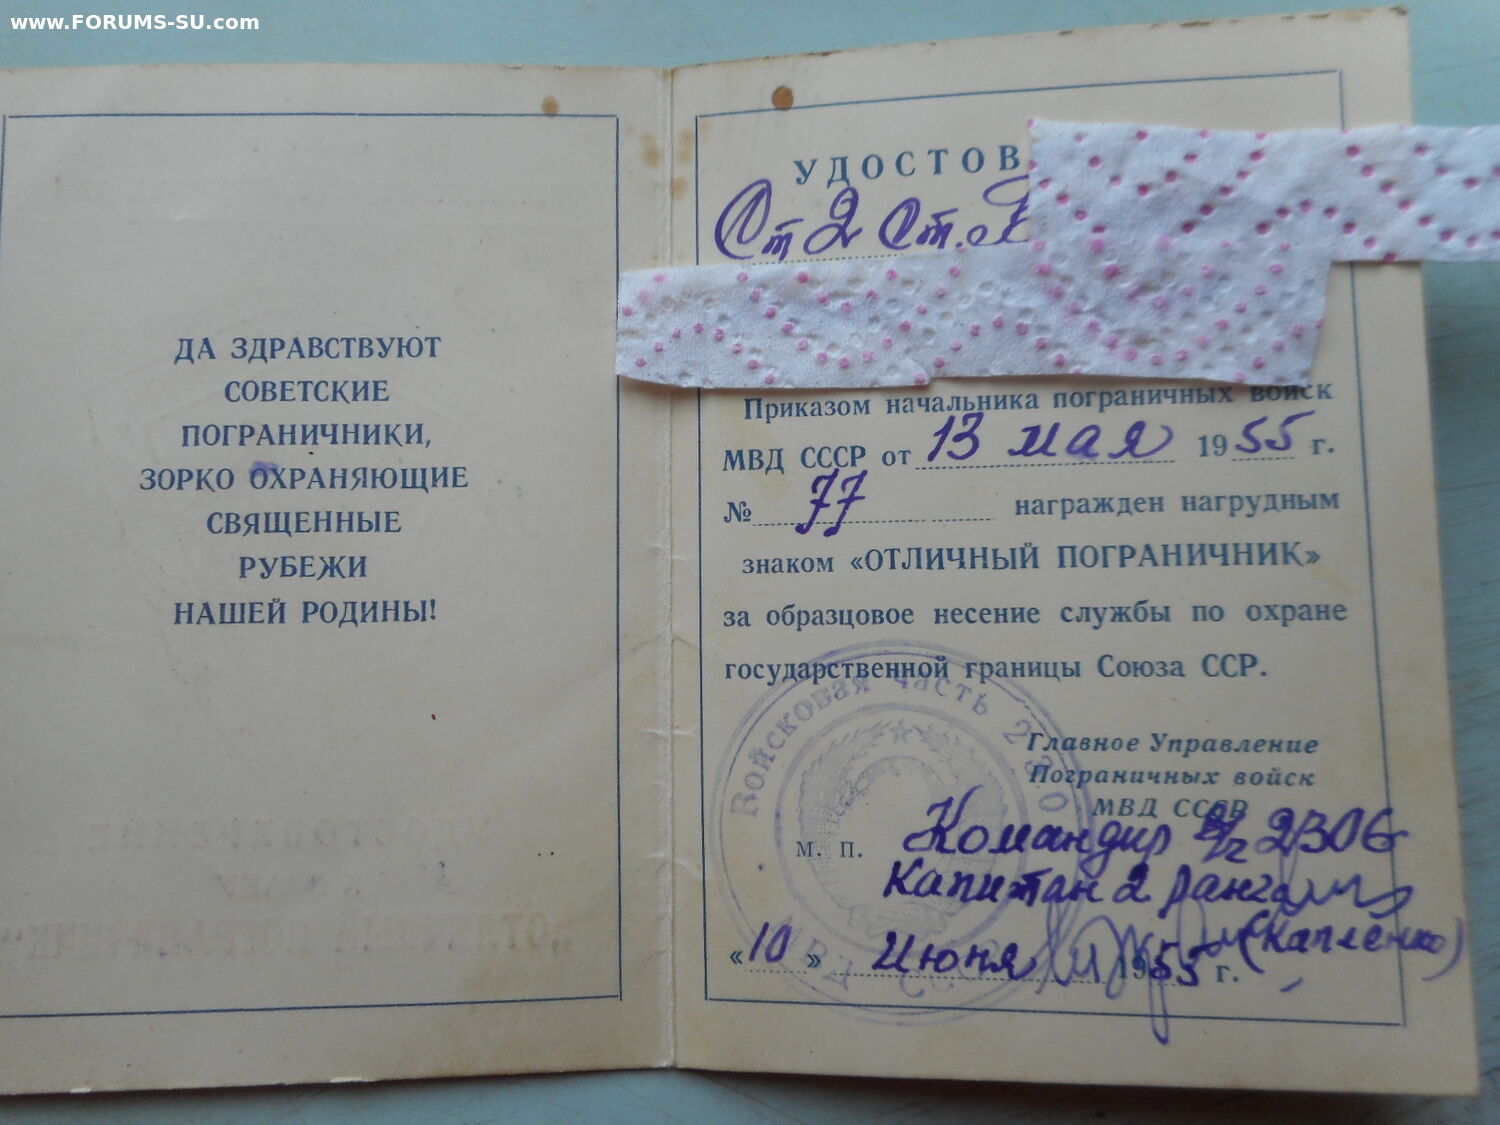 www.FORUMS-SU.com
ДА ЗДРАВСТВУЮТ
СОВЕТСКИЕ
ПОГРАНИЧНИКИ,
ЗОРКО ОХРАНЯЮЩИЕ
СВЯЩЕННЫЕ
РУБЕЖИ
НАШЕЙ РОДИНЫ!
УДОСТОВ
Ст 2 Ст.
Приказом начальника пограничных войск
МВД СССР от 13 мая 1955 г.
№ 77 награжден нагрудным
знаком «ОТЛИЧНЫЙ ПОГРАНИЧНИК»
за образцовое несение службы по охране
государственной границы Союза ССР.
Войсковая часть 230
МВД СССР
Главное Управление
Пограничных войск
МВД СССР
м. п.
Командир в/ч 2306
Капитан 2 ранга
(Капленко)
«10» Июня 1955 г.